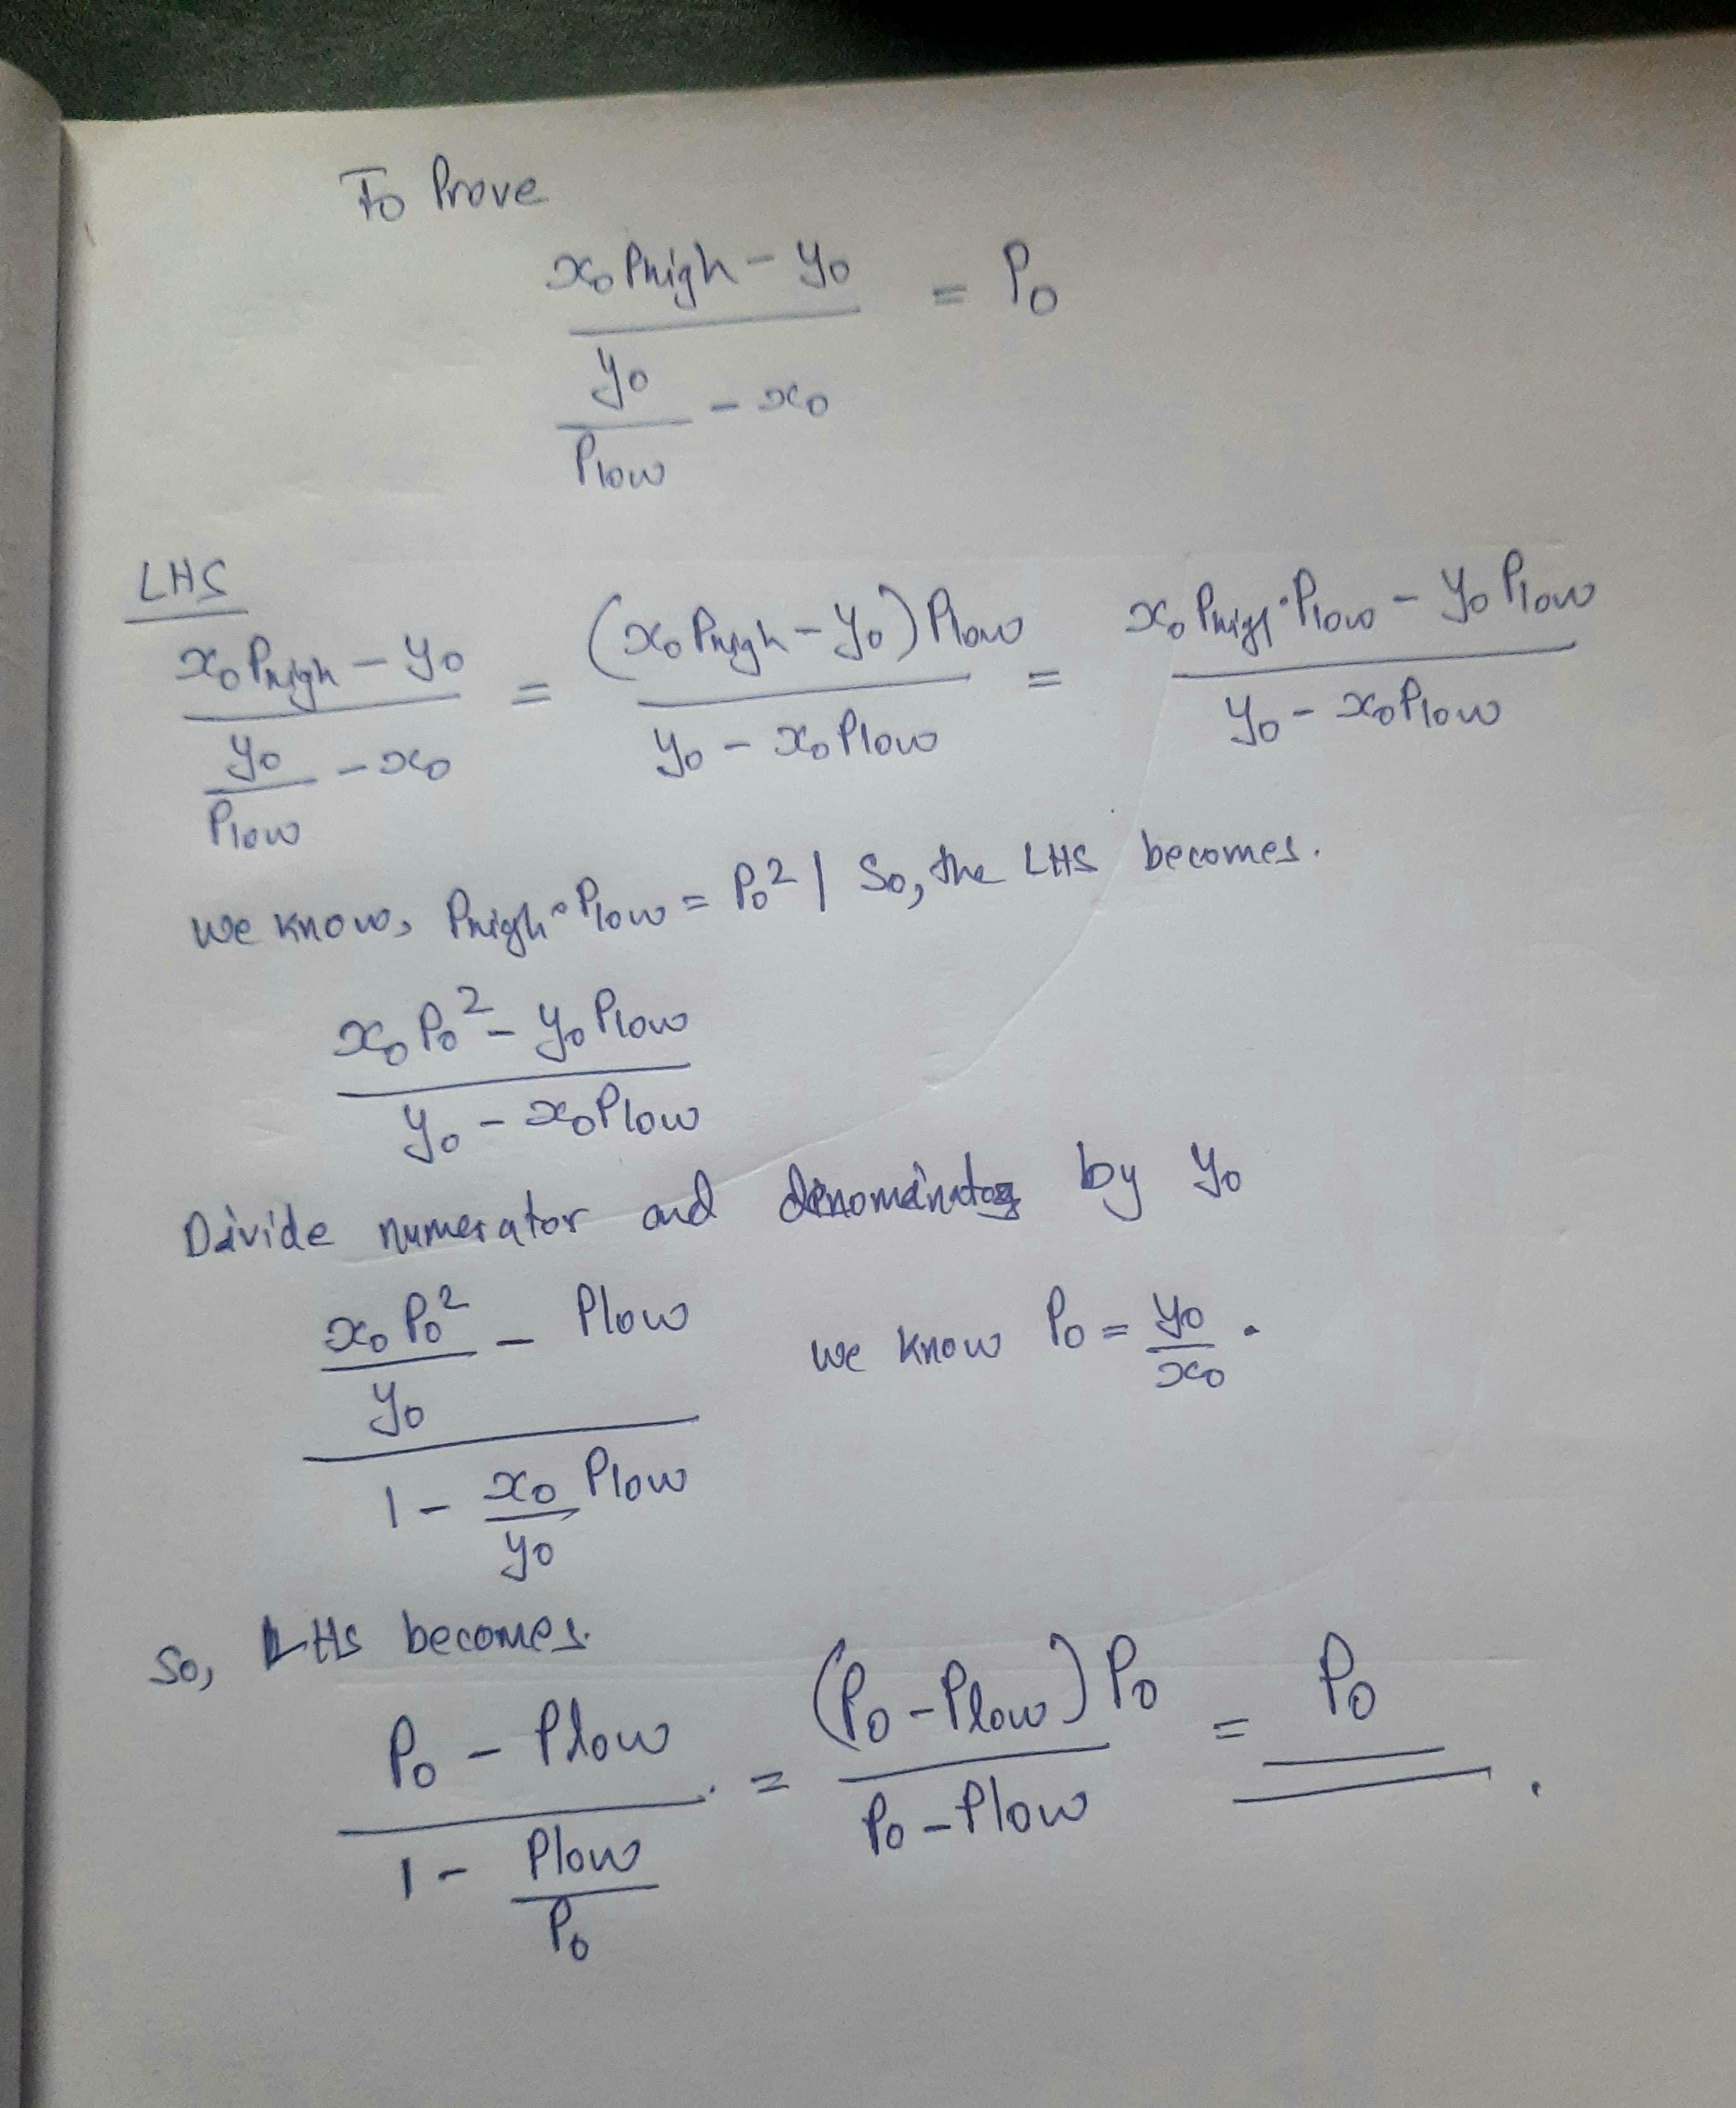 To Prove
x₀ Phigh - y₀ / (y₀/Plow - x₀) = P₀
LHS
x₀ Phigh - y₀ / (y₀/Plow - x₀) = (x₀ Phigh - y₀) Plow / (y₀ - x₀ Plow) = x₀ Phigh · Plow - y₀ Plow / (y₀ - x₀ Plow)
we know, Phigh · Plow = P₀² | So, the LHS becomes.
x₀ P₀² - y₀ Plow / (y₀ - x₀ Plow)
Divide numerator and denominator by y₀
(x₀ P₀² / y₀ - Plow) / (1 - x₀/y₀ Plow) we know P₀ = y₀/x₀ .
So, LHS becomes.
(P₀ - Plow) / (1 - Plow/P₀) . = (P₀ - Plow) P₀ / (P₀ - Plow) = P₀ .